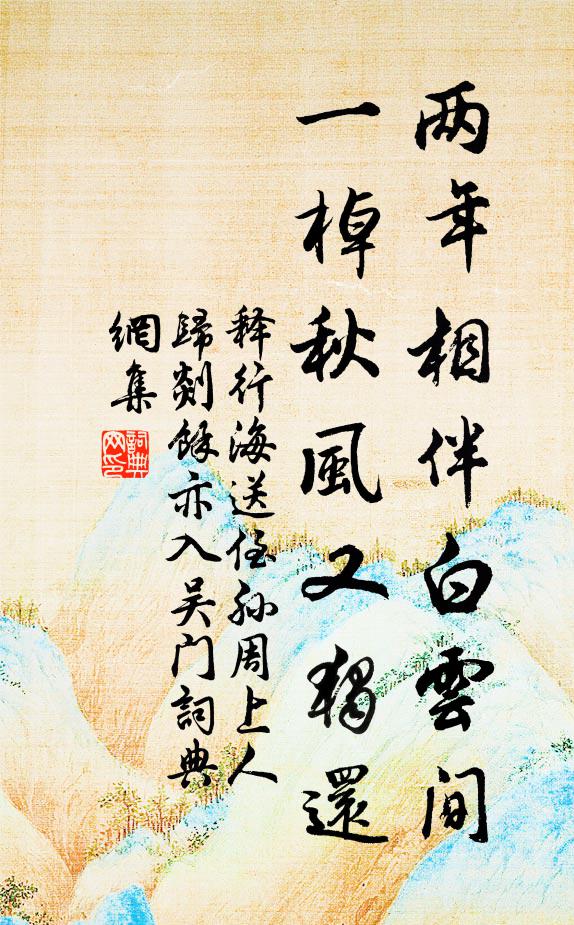 两年相伴白雲间
一棹秋风又独還
释行海送侄孙周上人
歸剡馀亦入吴门詞典
網集
詞典
网印